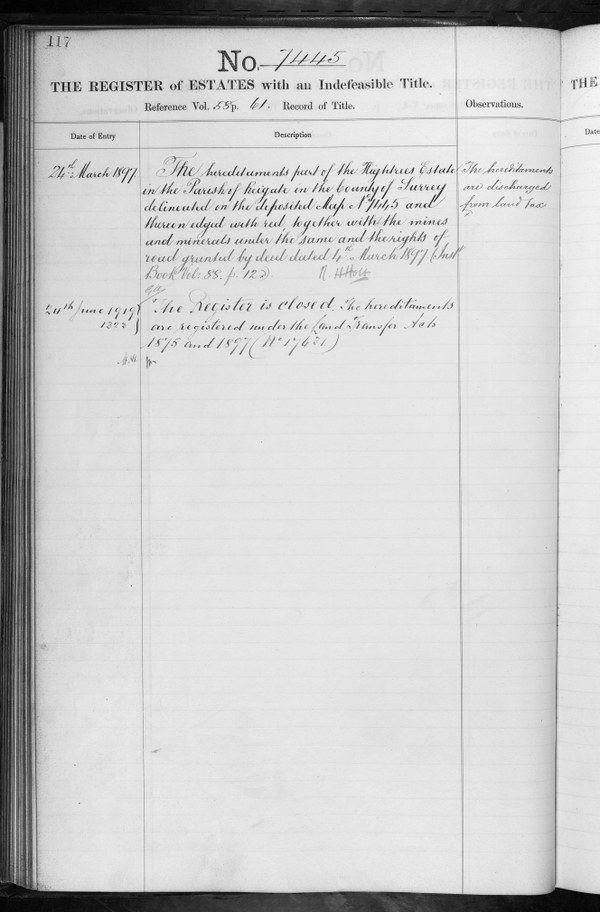 117
No. 7445
THE REGISTER of ESTATES with an Indefeasible Title.
Reference Vol. 58 p. 61. Record of Title.
Observations.
Date of Entry
Description
24th March 1897
The hereditaments part of the Hightrees Estate
in the Parish of Reigate in the County of Surrey
delineated on the deposited Map No 7445 and
thereon edged with red, together with the mines
and minerals under the same and the rights of
road granted by deed dated 4th March 1897 (Inst
Book Vol: 88. p. 123)
The hereditaments
are discharged
from land tax
24th June 1919
1323
The Register is closed. The hereditaments
are registered under the Land Transfer Acts
1875 and 1897 (No 17631)
THE
Date